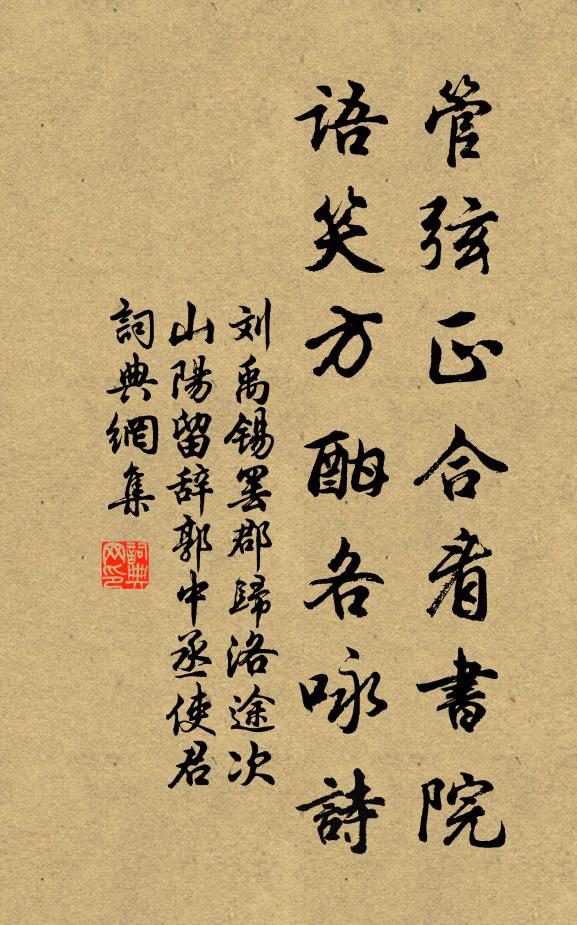 管弦正合看書院
語笑方酣各咏詩
刘禹锡罢郡歸洛途次
山陽留辞郭中丞使君
詞典網集
詞典
网印